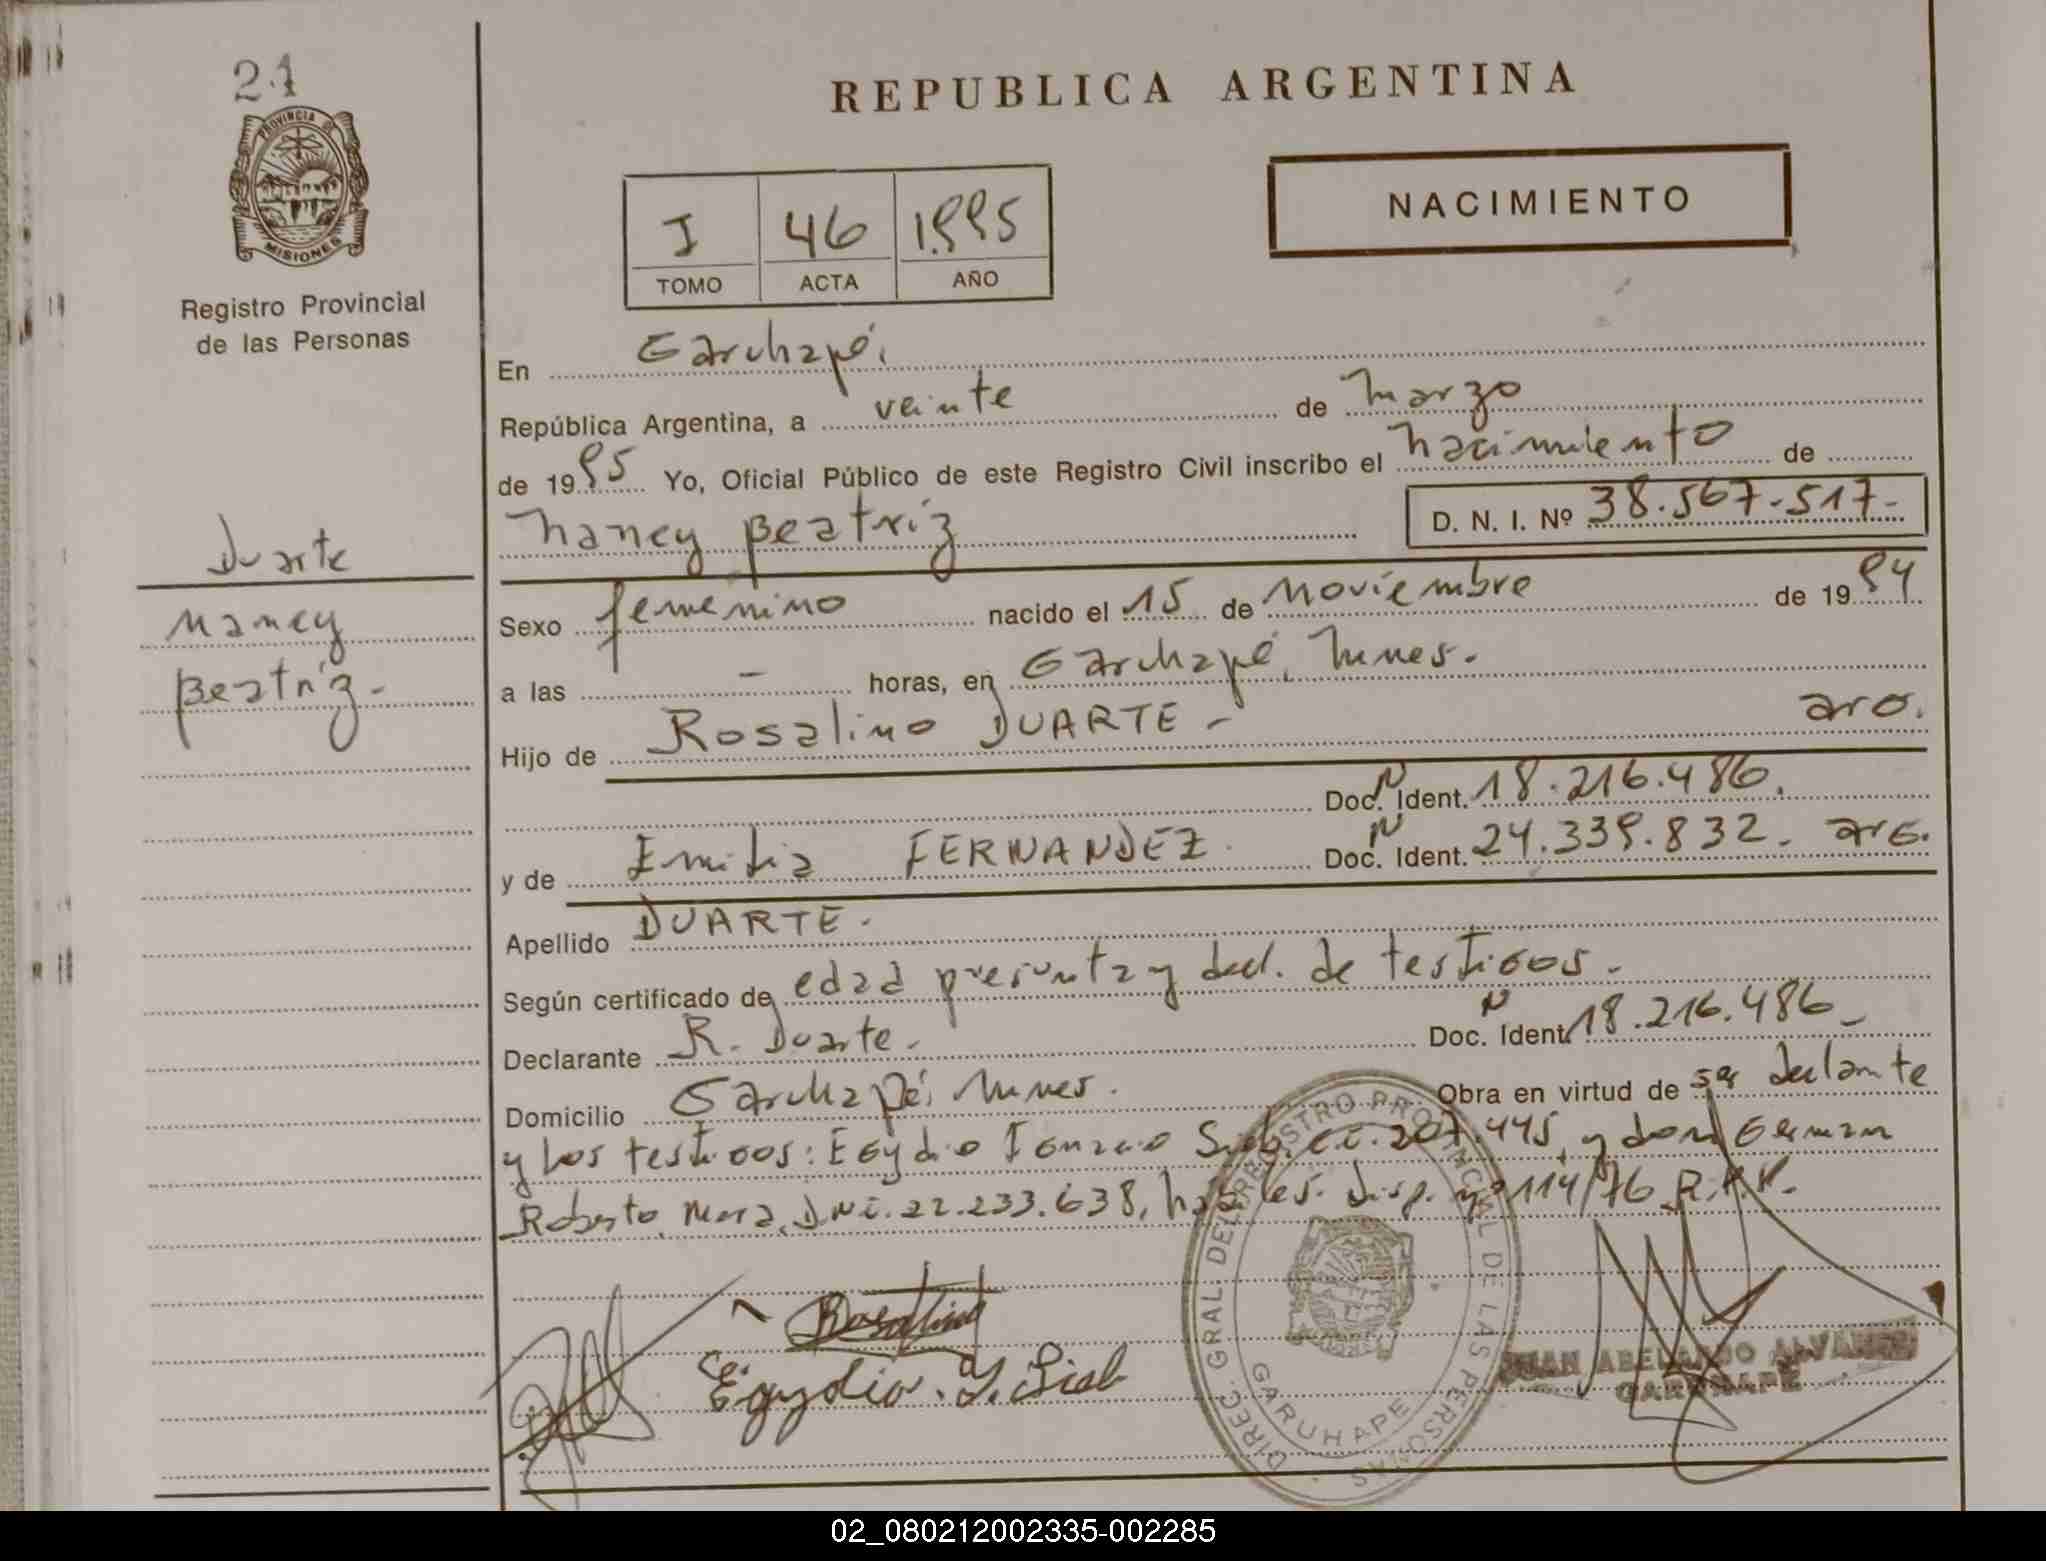 21
REPUBLICA ARGENTINA
PROVINCIA DE
MISIONES
Registro Provincial
de las Personas
NACIMIENTO
I 46 1.995
TOMO ACTA AÑO
En Garuhapé,
República Argentina, a veinte de marzo
de 1995 Yo, Oficial Público de este Registro Civil inscribo el nacimiento de
Nancy Beatríz D. N. I. Nº 38.567.517-
Duarte
Nancy
Beatríz.-
Sexo femenino nacido el 15 de noviembre de 1994
a las - horas, en Garuhapé,
Hijo de Rosalino DUARTE - aro.
Doc. Ident. 18.216.486.
y de FERNANDEZ Doc. Ident. 24.339.832.
Apellido DUARTE.
Según certificado de edad presunta y decl. de testigos.
Declarante R. Duarte. Doc. Ident. 18.216.486-
Domicilio Garuhapé, Obra en virtud de
y los testigos: Egydio Ignacio Sieb, c.i. 207.445, y don German
Roberto DNi. 22.233.638, Disp. nº 114/76 R.P.P.
Rosalino
Egydio. Y. Sieb
DIREC. GRAL DEL REGISTRO PROVINCIAL DE LAS PERSONAS
GARUHAPE
JUAN ABELARDO ALVAREZ
GARUHAPE
02_080212002335-002285